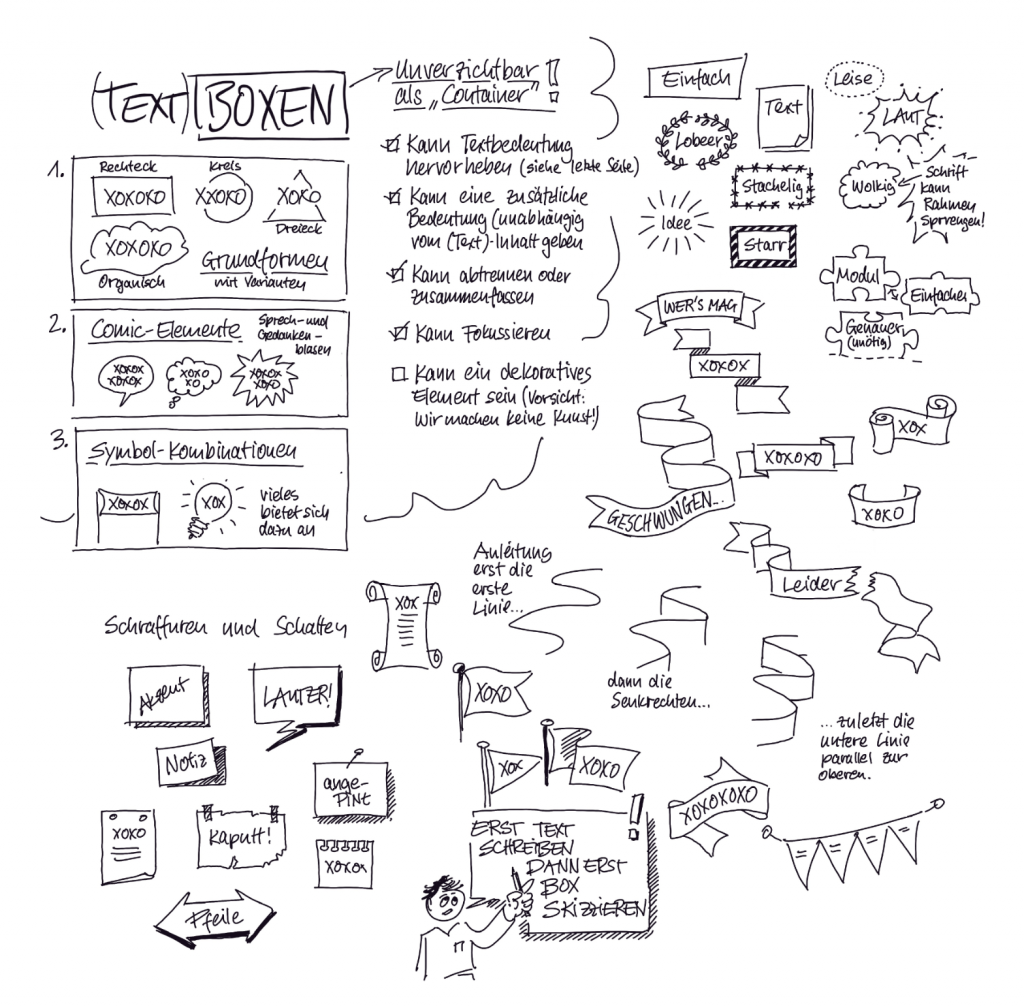 (TEXT) BOXEN
1.
Rechteck
XOXOXO
Kreis
XXOXO
XOXO
Dreieck
XOXOXO
Organisch
Grundformen
mit Varianten
2.
Comic-Elemente
Sprech- und
Gedanken-
blasen
XOXOX
XOXOX
XOXO
XO
XOXOX
XOXO
3.
Symbol-Kombinationen
XOXOX
XOX
vieles
bietet sich
dazu an
Unverzichtbar
als „Container" !
Kann Textbedeutung
hervorheben (siehe letzte Seite)
Kann eine zusätzliche
Bedeutung (unabhängig
vom (Text)-Inhalt geben
Kann abtrennen oder
zusammenfassen
Kann Fokussieren
Kann ein dekoratives
Element sein (Vorsicht:
Wir machen keine Kunst!)
Einfach
Text
Leise
LAUT
Lobeer
Stachelig
Wolkig
Schrift
kann
Rahmen
Sprrengen!
Idee
Starr
Modul
Einfacher
Genauer
(unötig)
WER'S MAG
XOXOX
XOX
XOXOXO
XOXO
GESCHWUNGEN...
Leider
Anleitung
erst die
erste
Linie...
dann die
Senkrechten...
...zuletzt die
untere Linie
parallel zur
oberen.
Schraffuren und Schatten
XOX
Akzent
LAUTER!
Notiz
ange-
PINt
XOXO
Kaputt!
XOXOX
Pfeile
XOXO
XOX
XOXO
XOXOXOXO
ERST TEXT !
SCHREIBEN
DANN ERST
BOX
SKIZZIEREN